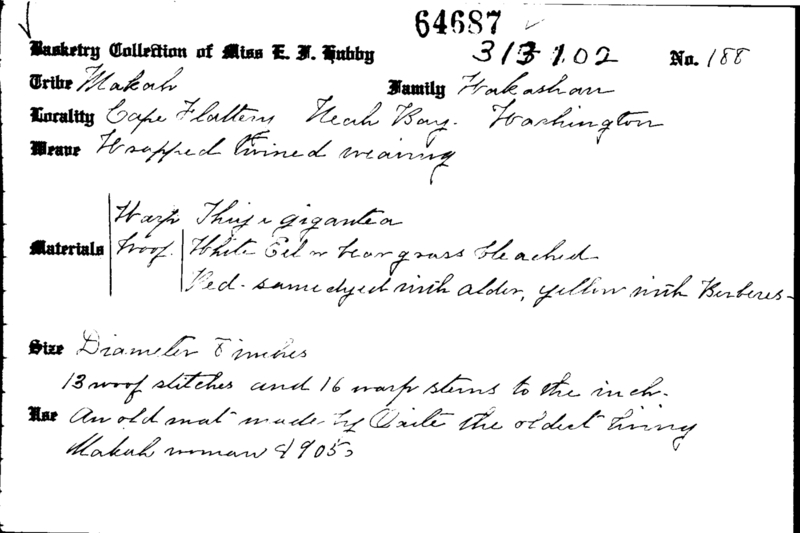 64687
Basketry Collection of Miss E. F. Hubby 313 1.02 No. 188
Tribe Makah Family Wakashan
Locality Cape Flattery Neah Bay. Washington
Weave Wrapped twined weaving
Warp Thuja gigantea
Materials Woof. White Eel or bear grass bleached
Red - same dyed with alder, yellow with Berberes -
Size Diameter 8 inches
13 woof stitches and 16 warp stems to the inch.
Use An old mat made by the oldest living
Makah woman 1905